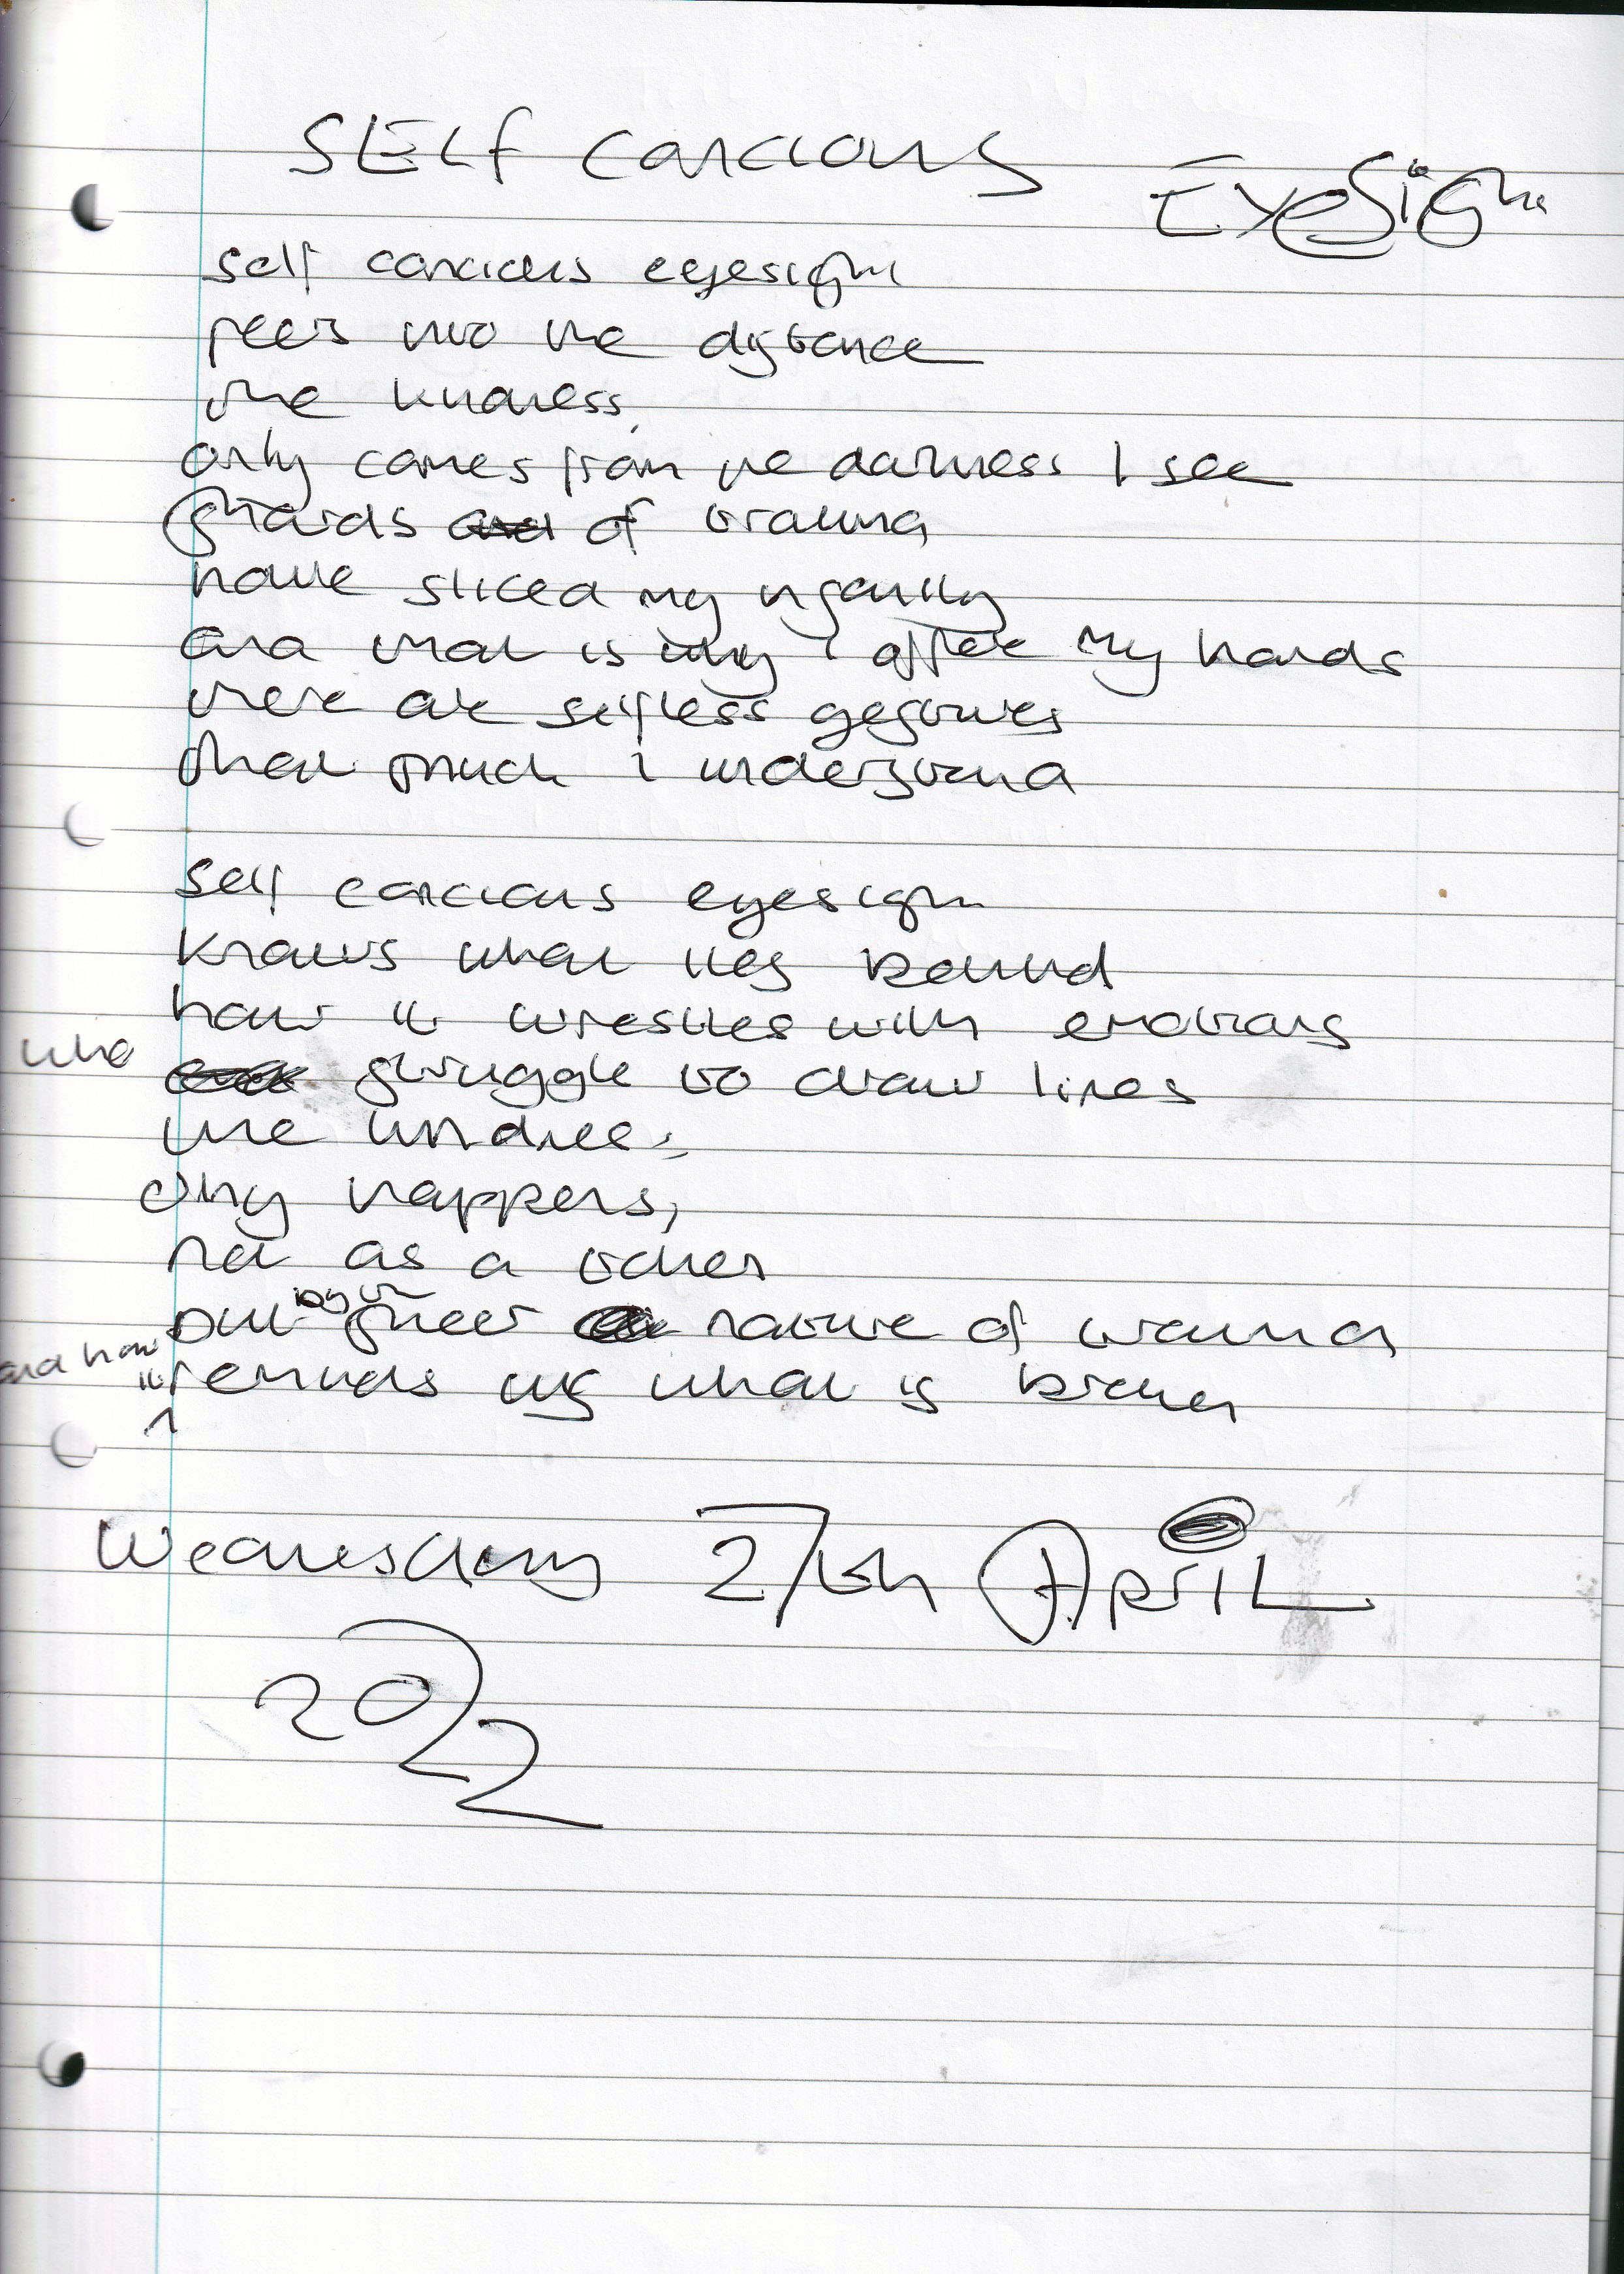 SELF Concious EyeSight
self concious eyesight
peers into the distance
the kindness,
only comes from the darkness I see
shards of trauma
have sliced my
and that is why i offer my hands
there are selfless gestures
that much i understand
self concious eyesight
knows what lies behind
how it wrestles with emotions
who struggle to draw lines
the kindness,
only happens,
not as a token
but by the sheer nature of trauma
and how it reminds us what is broken
Wednesday 27th April
2022